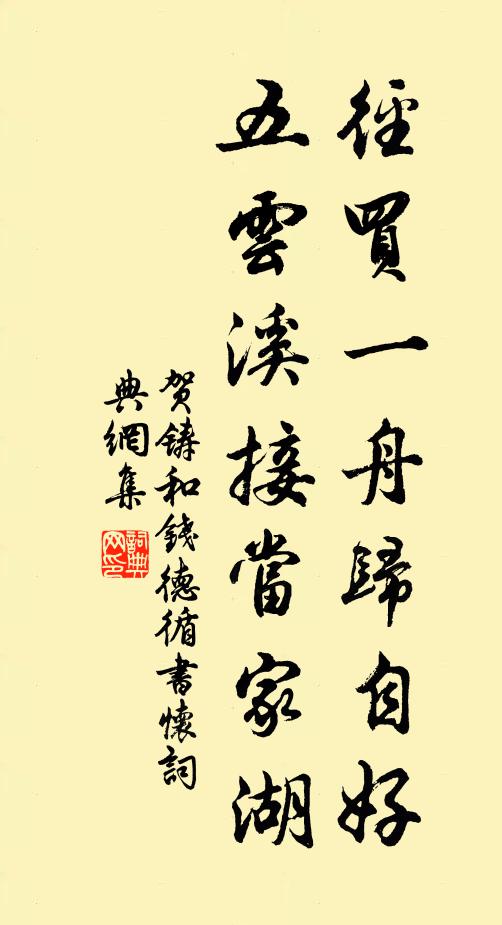 徑買一舟歸自好
五雲溪接當家湖
賀鑄和錢德循書懷詞
典網集
詞典
网印